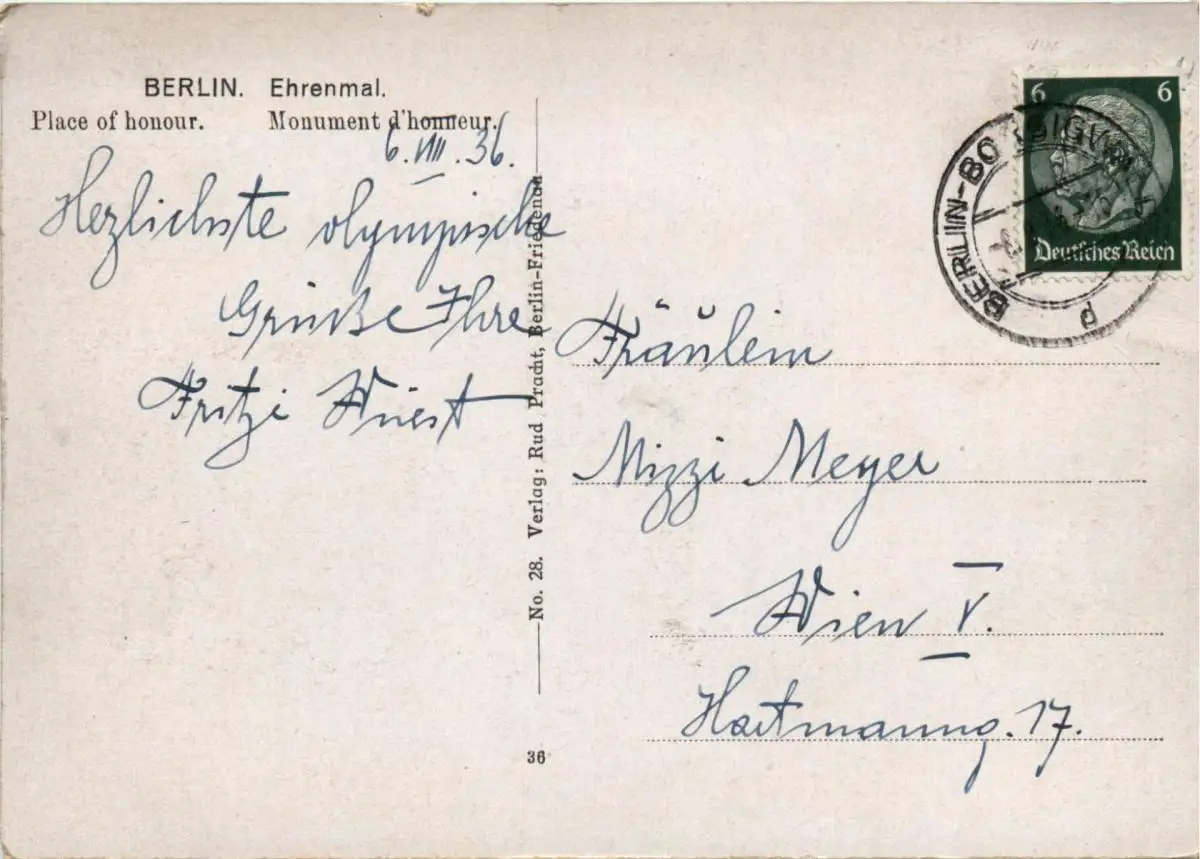 BERLIN. Ehrenmal.
Place of honour. Monument d'honneur.
6. VIII. 36.
Hezlichste olympische
Grüße Ihre
Fritzi Wiest
No. 28. Verlag: Rud Pracht, Berlin-Friedenau
36
6 6
Deutsches Reich
BERLIN-BO
Fräulein
Mizzi Meyer
Wien V.
Hartmanng. 17.